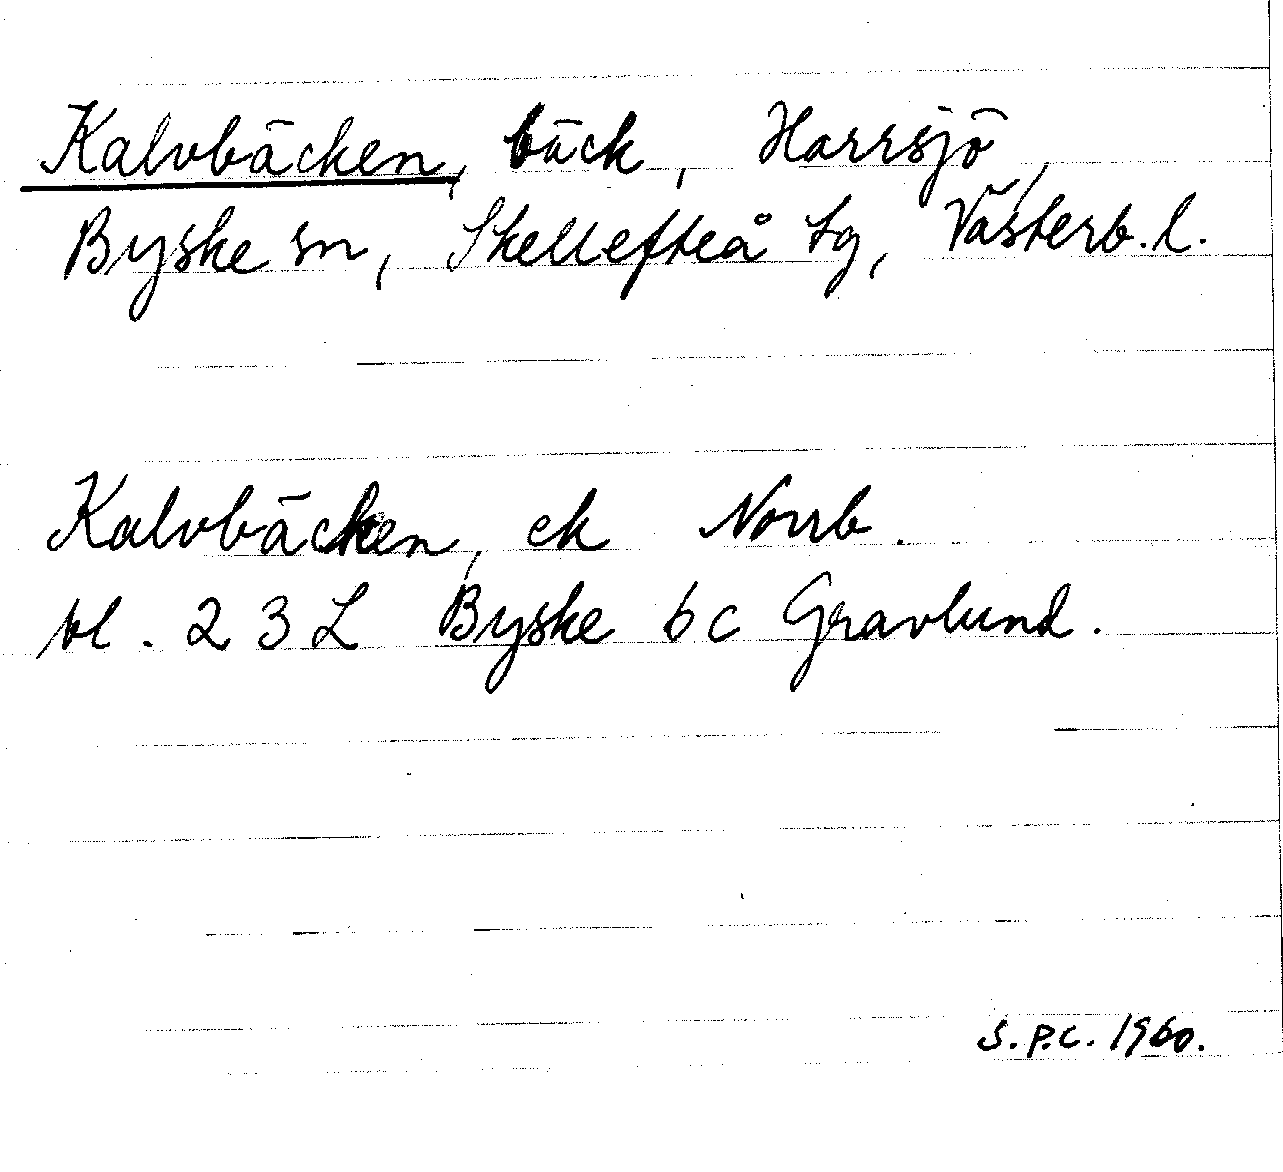 Kalvbäcken, bäck, Harrsjö,
Byske sn, Skellefteå tg, Västerb. l.
Kalvbäcken, ek Norrb.
bl. 23 L Byske 6 c Gravlund.
S.P.C. 1960.